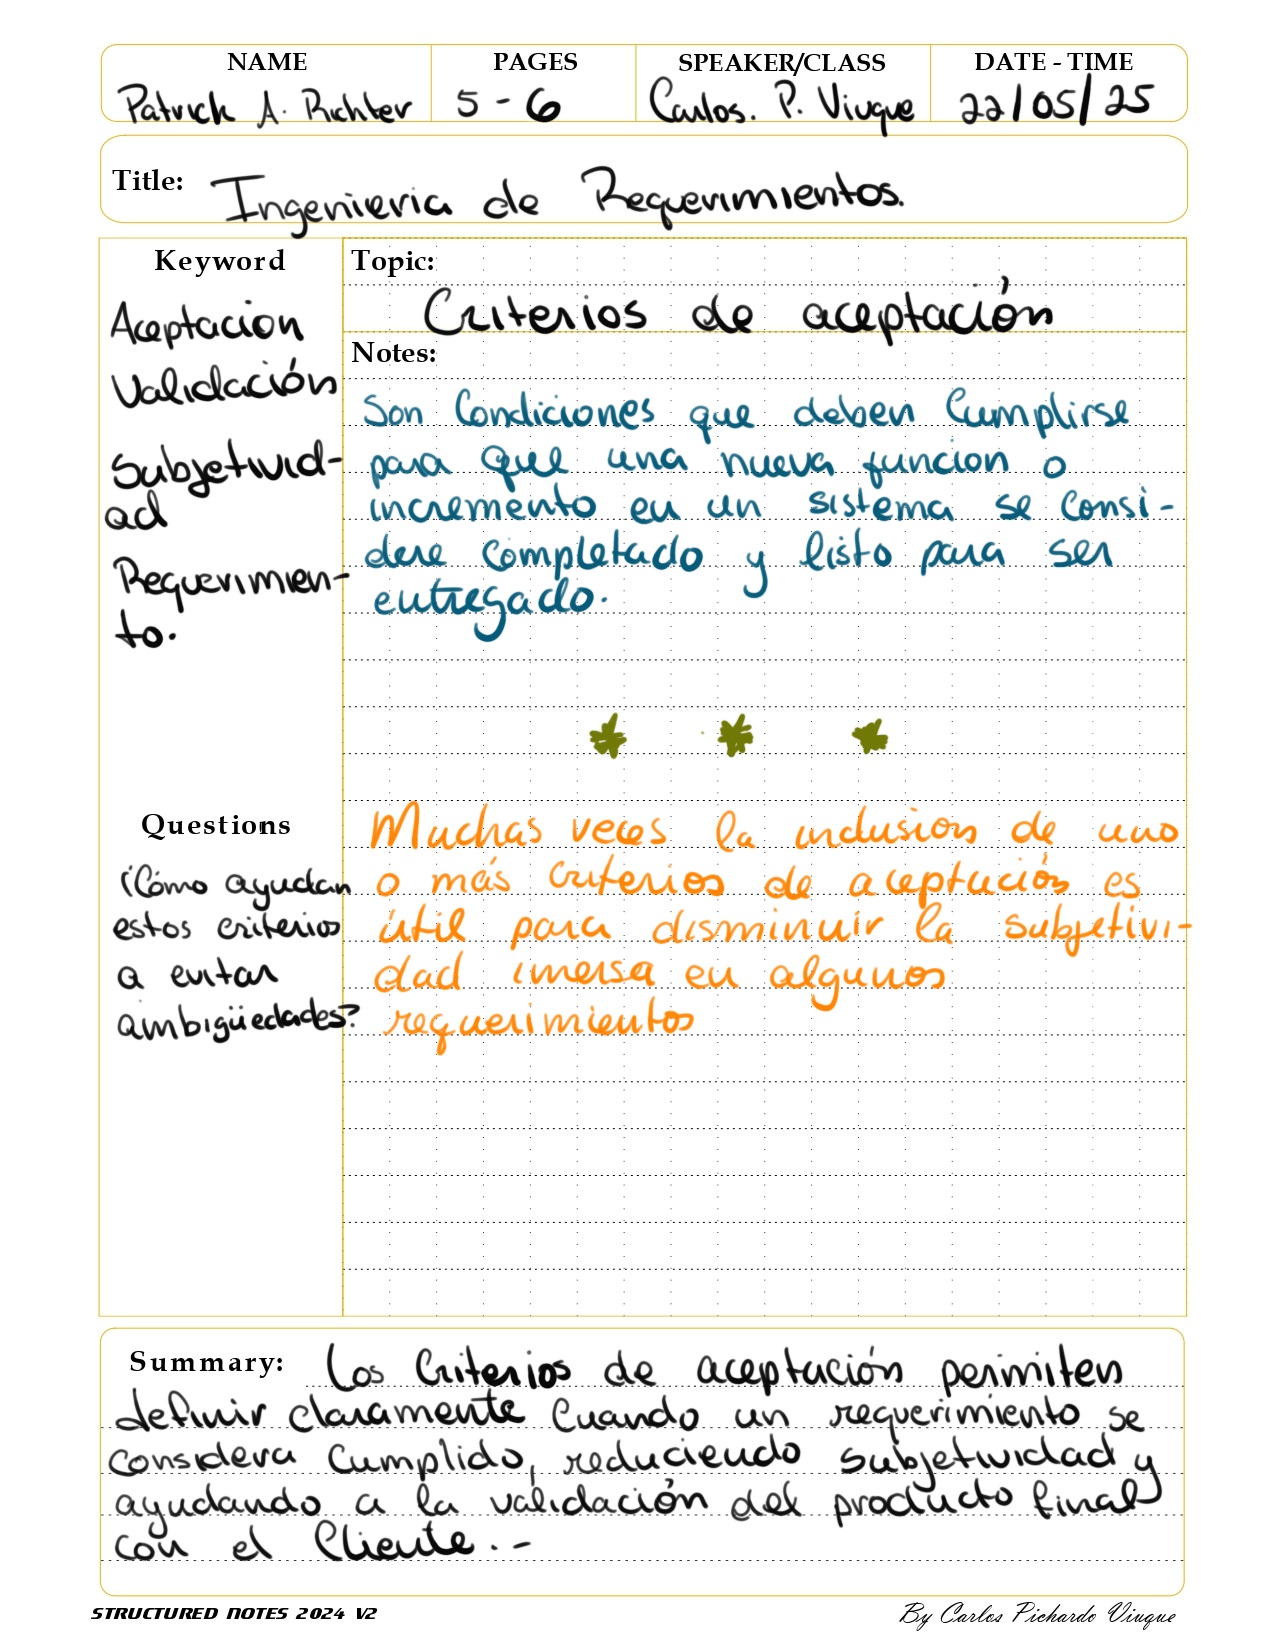 NAME PAGES SPEAKER/CLASS DATE - TIME
Patrick A. Richter 5 - 6 Carlos. P. Viuque 22/05/25
Title: Ingenieria de Requerimientos.
Keyword
Aceptacion
Validación
Subjetivid-
ad
Requerimien-
to.
Topic:
Criterios de aceptación
Notes:
Son Condiciones que deben Cumplirse
para que una nueva funcion o
incremento en un sistema se Consi-
dere completado y listo para ser
entregado.
Questions
¿Cómo ayudan
estos criterios
a evitar
ambigüedades?
Muchas veces la inclusión de uno
o más criterios de aceptación es
útil para disminuir la subjetivi-
dad imersa en algunos
requerimientos
Summary: Los Criterios de aceptación permiten
definir claramente Cuando un requerimiento se
considera Cumplido, reduciendo subjetividad y
ayudando a la validación del producto final
con el Cliente.-
STRUCTURED NOTES 2024 V2 By Carlos Pichardo Viuque